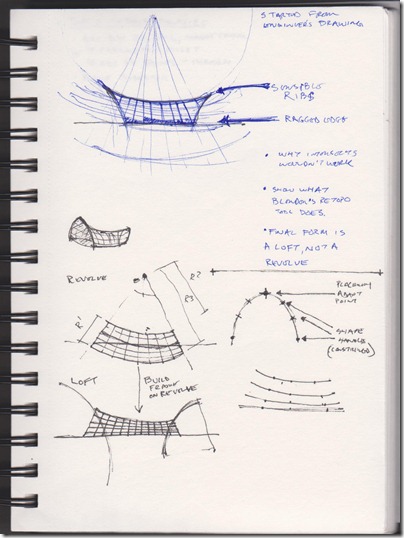 STARTED FROM
ENGINEER'S DRAWING
SENSIBLE
RIBS
RAGGED EDGE
• WHY IMPORTS
WOULDN'T WORK
• SHOW WHAT
BLENDER'S RETOPO
TOOL DOES.
• FINAL FORM IS
A LOFT, NOT A
REVOLVE
REVOLVE
R2
R3
R1
PLACEMENT
ABOUT
POINT
SHAPE
HANDLE
(CONSTRAINED)
LOFT
BUILD
FRAME
ON REVOLVE